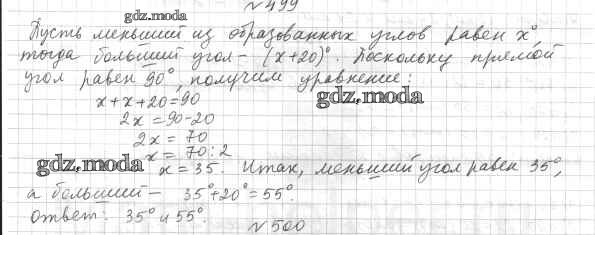 №499
gdz.moda
Пусть меньший из образованных углов равен x°,
тогда больший угол – (x+20)°. Поскольку прямой
угол равен 90°, получим уравнение:
x+x+20=90
gdz.moda
2x = 90-20
2x = 70
x = 70:2
gdz.moda
x = 35. Итак, меньший угол равен 35°,
а больший – 35°+20°=55°.
ответ: 35° и 55°.
№500